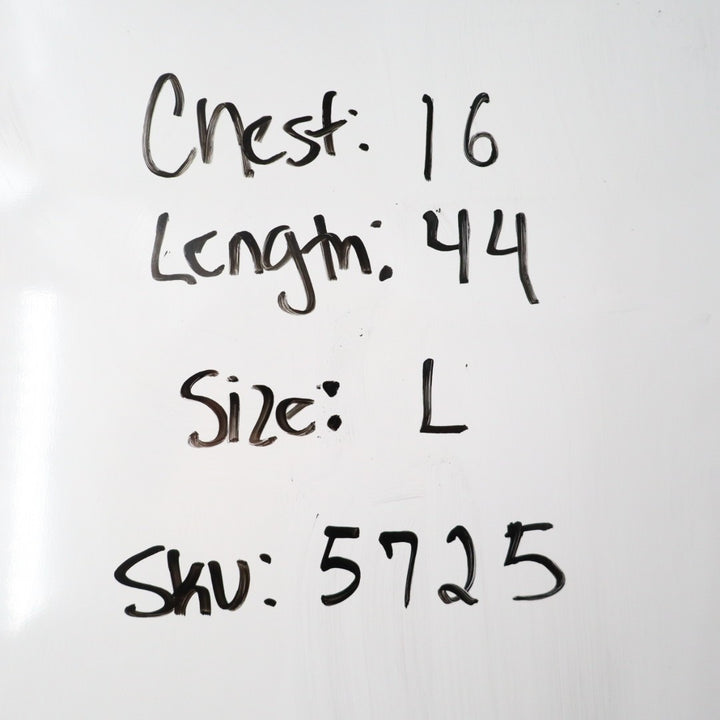 Chest: 16
Length: 44
Size: L
Sku: 5725